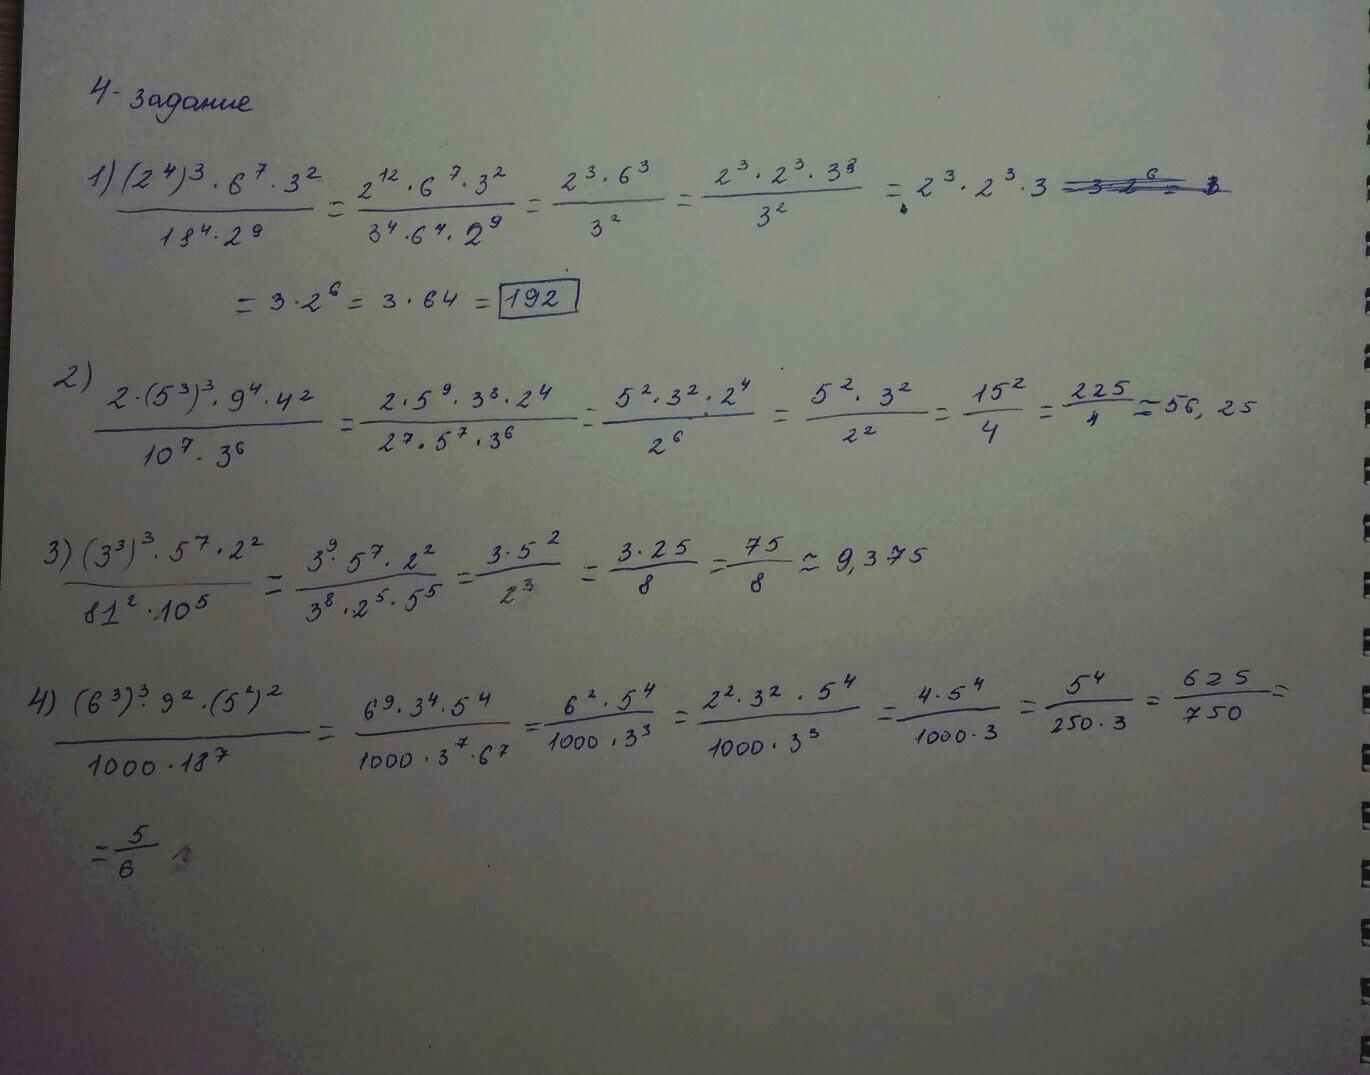 4- задание
1) \frac{(2^4)^3 \cdot 6^7 \cdot 3^2}{18^4 \cdot 2^9} = \frac{2^{12} \cdot 6^7 \cdot 3^2}{3^4 \cdot 6^4 \cdot 2^9} = \frac{2^3 \cdot 6^3}{3^2} = \frac{2^3 \cdot 2^3 \cdot 3^3}{3^2} = 2^3 \cdot 2^3 \cdot 3
= 3 \cdot 2^6 = 3 \cdot 64 = 192
2) \frac{2 \cdot (5^3)^3 \cdot 9^4 \cdot 4^2}{10^7 \cdot 3^6} = \frac{2 \cdot 5^9 \cdot 3^8 \cdot 2^4}{2^7 \cdot 5^7 \cdot 3^6} = \frac{5^2 \cdot 3^2 \cdot 2^4}{2^6} = \frac{5^2 \cdot 3^2}{2^2} = \frac{15^2}{4} = \frac{225}{4} ≈ 56,25
3) \frac{(3^3)^3 \cdot 5^7 \cdot 2^2}{81^2 \cdot 10^5} = \frac{3^9 \cdot 5^7 \cdot 2^2}{3^8 \cdot 2^5 \cdot 5^5} = \frac{3 \cdot 5^2}{2^3} = \frac{3 \cdot 25}{8} = \frac{75}{8} ≈ 9,375
4) \frac{(6^3)^3 \cdot 9^2 \cdot (5^2)^2}{1000 \cdot 18^7} = \frac{6^9 \cdot 3^4 \cdot 5^4}{1000 \cdot 3^7 \cdot 6^7} = \frac{6^2 \cdot 5^4}{1000 \cdot 3^3} = \frac{2^2 \cdot 3^2 \cdot 5^4}{1000 \cdot 3^3} = \frac{4 \cdot 5^4}{1000 \cdot 3} = \frac{5^4}{250 \cdot 3} = \frac{625}{750} =
= \frac{5}{6}